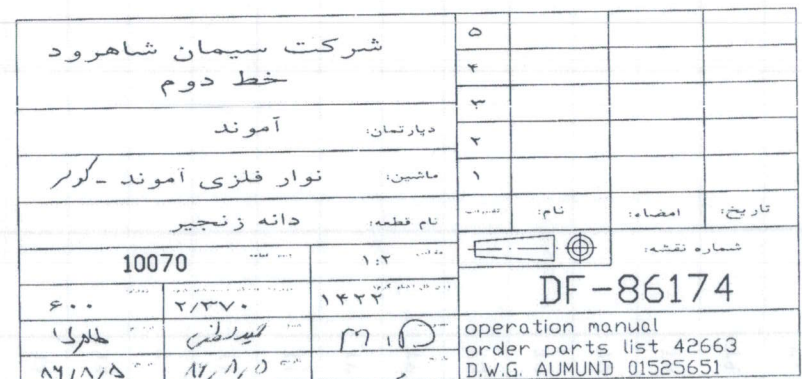 شرکت سیمان شاهرود
خط دوم
دپارتمان: آموند
ماشین: نوار فلزی آموند - کولر
نام قطعه: دانه زنجیر
10070
۱:۲
۶۰۰
۲/۳۷۰
۱۴۲۲
۸۶/۸/۵
۸۶/۸/۵
۵
۴
۳
۲
۱
نام:
امضاء:
تاریخ:
شماره نقشه:
DF-86174
operation manual
order parts list 42663
D.W.G. AUMUND 01525651